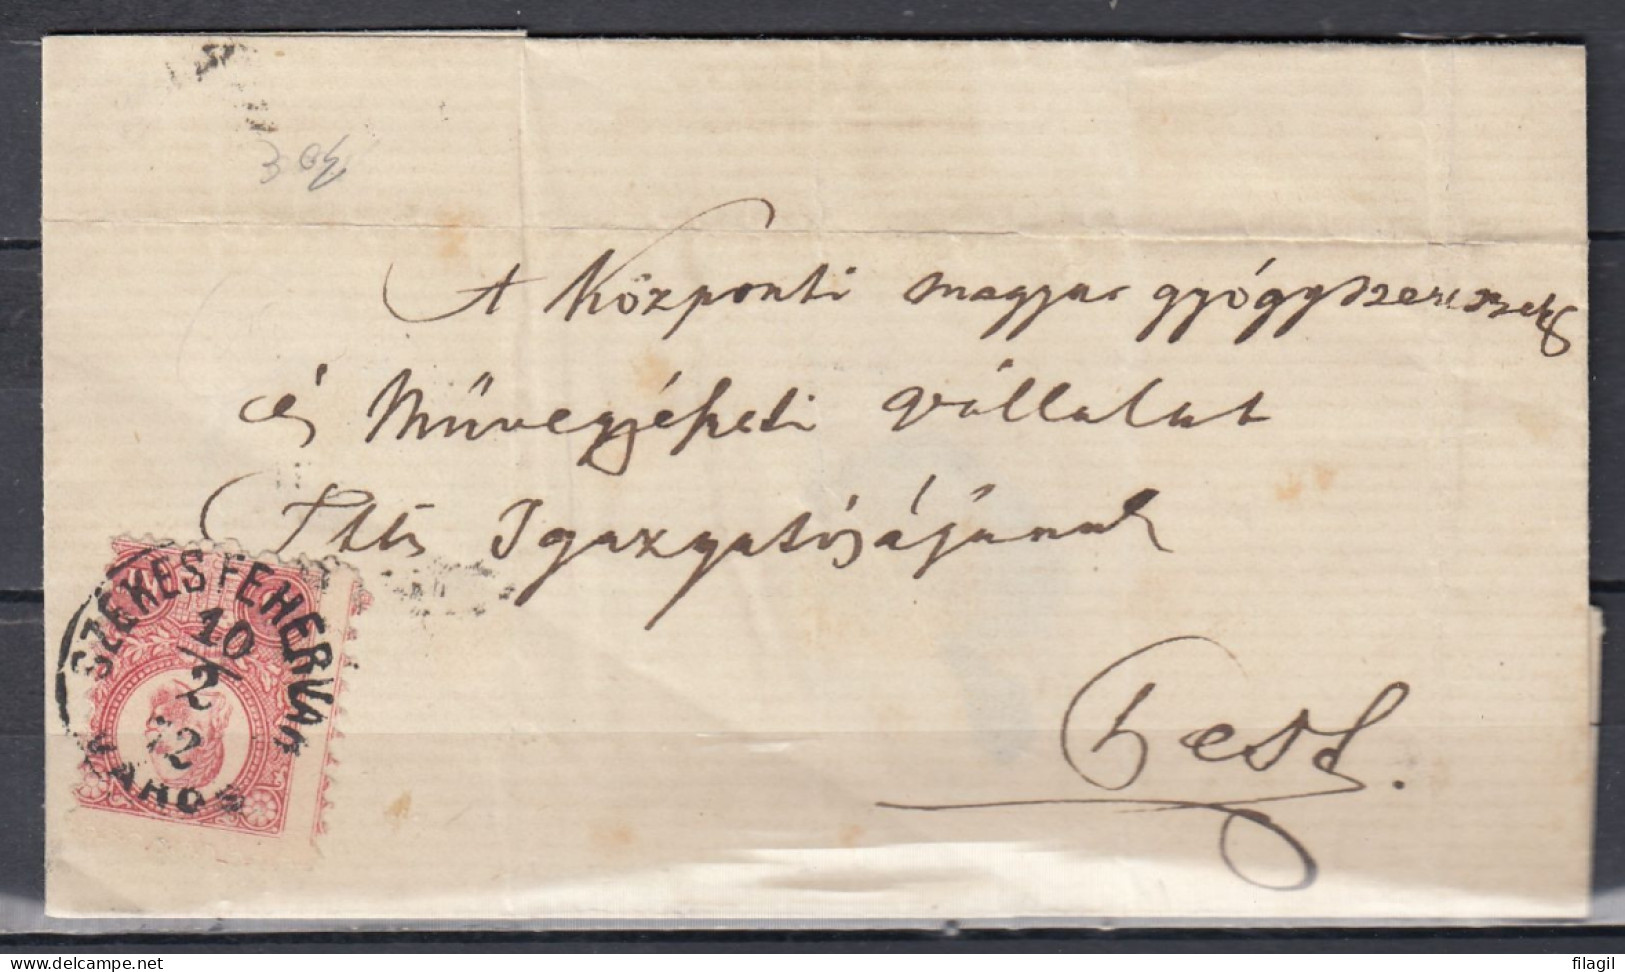 A Központi magyar gyógyszerészek
és Művegyészeti vállalat
Ttts Igazgatóságának
Pest.
SZÉKESFEHÉRVÁR
10
2
72
VÁROS
delcampe.net
filagil